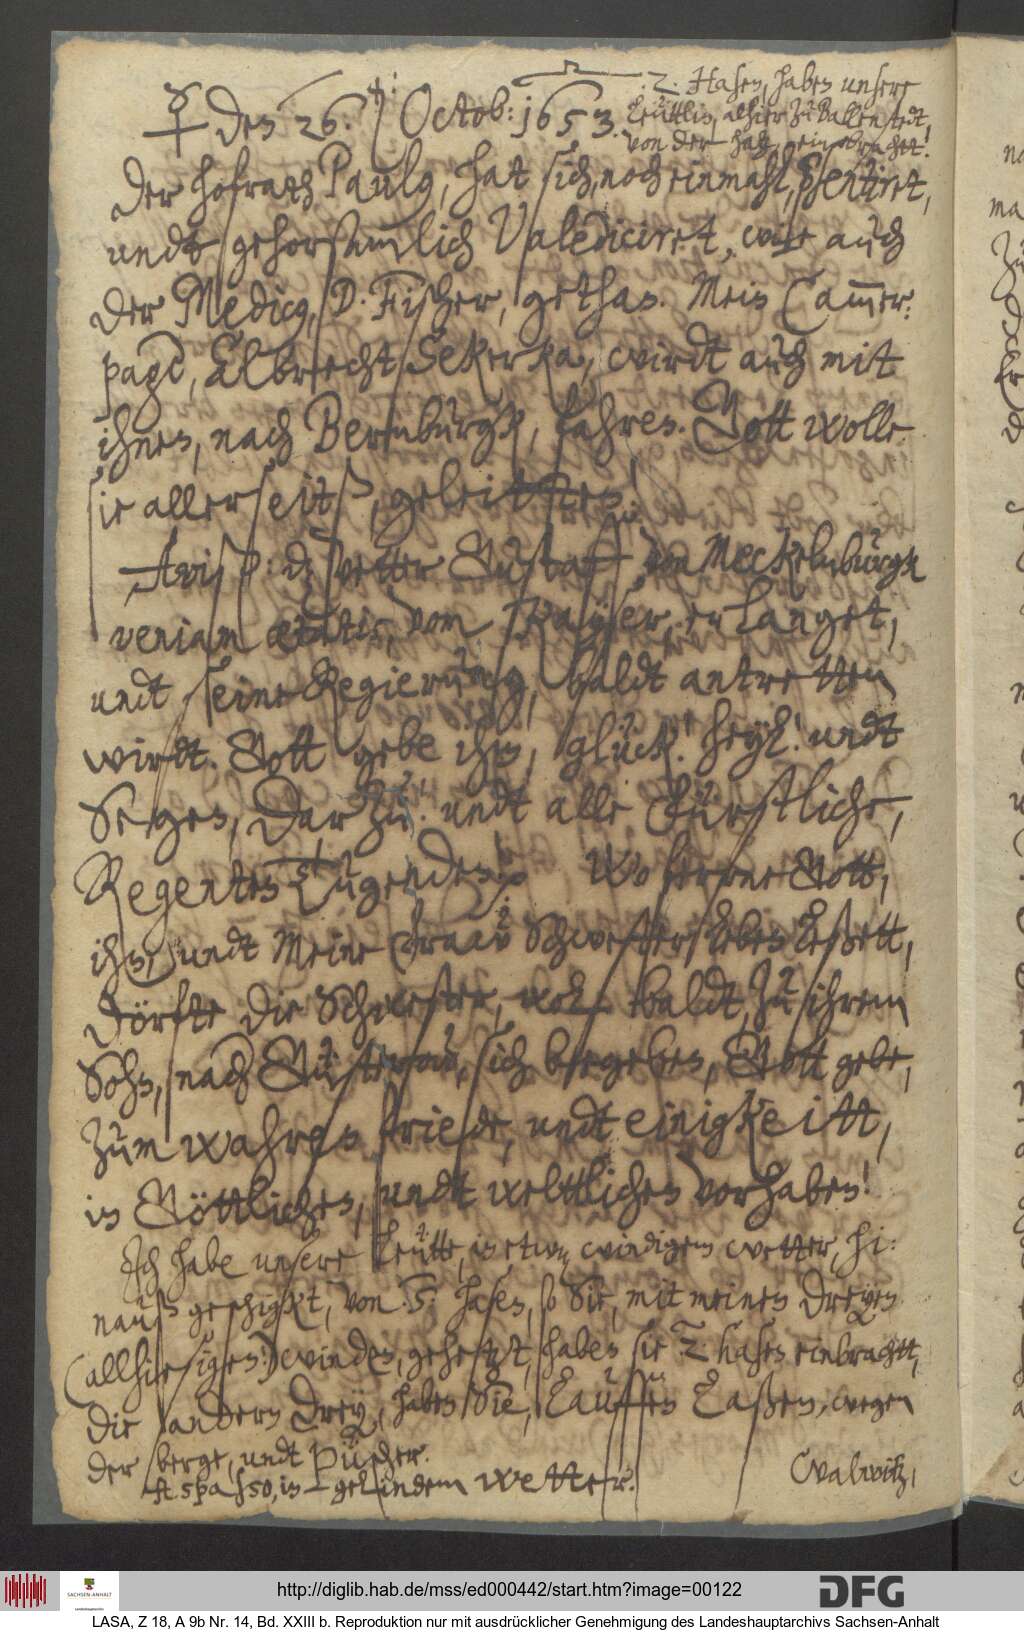 ☿ den 26. ♃: Octob: 1653. .2. Hasen, haben unsere
Leüttlin, alhier zu Ballenstedt,
von der hatz, einbrachtt!
Der hofrath Paulj, hat sich, noch einmahl, præsentiret,
undt gehorsamlich Valediciret, wie auch
der Medicus, D. Fischer, gethan. Mein Cammer-
page, Albrecht Sekerka, wirdt auch mit
ihnen, nach Bernburgk, fahren. Gott wolle
sie allerseitß, geleitten!
Avis: daß vetter Gustaff von Meckelnburgk
veniam ætatis, vom Kayser, erlanget,
undt seine Regierung, baldt antretten
wirdt. Gott gebe ihm, glück! heyl! undt
Segen, darzu! undt alle Fürstliche,
Regenten Tugenden! Woferrne Gott,
ihn, undt Meine Fraw Schwester leben leßett,
dörfte die Schwester, wol baldt, zu ihrem
Sohn, nach Güstrow, sich begeben, Gott gebe,
zum wahren friede, undt einigkeitt,
in Göttlichen, undt welttlichen vorhaben!
Ich habe unsere Leütte, in etwaß windigem wetter, hi-
nauß geschigkt, von .5. hasen, so Sie, mit meinen dreyen
(allhiesigen) winden, gehetzt, haben sie 2. hasen einbrachtt,
die andern drey, haben Sie, lauffen laßen, wegen
der berge, undt püscher.
st. spasso, in gelindem wetter.
Walwitz,
http://diglib.hab.de/mss/ed000442/start.htm?image=00122
DFG
SACHSEN-ANHALT
LASA, Z 18, A 9b Nr. 14, Bd. XXIII b. Reproduktion nur mit ausdrücklicher Genehmigung des Landeshauptarchivs Sachsen-Anhalt